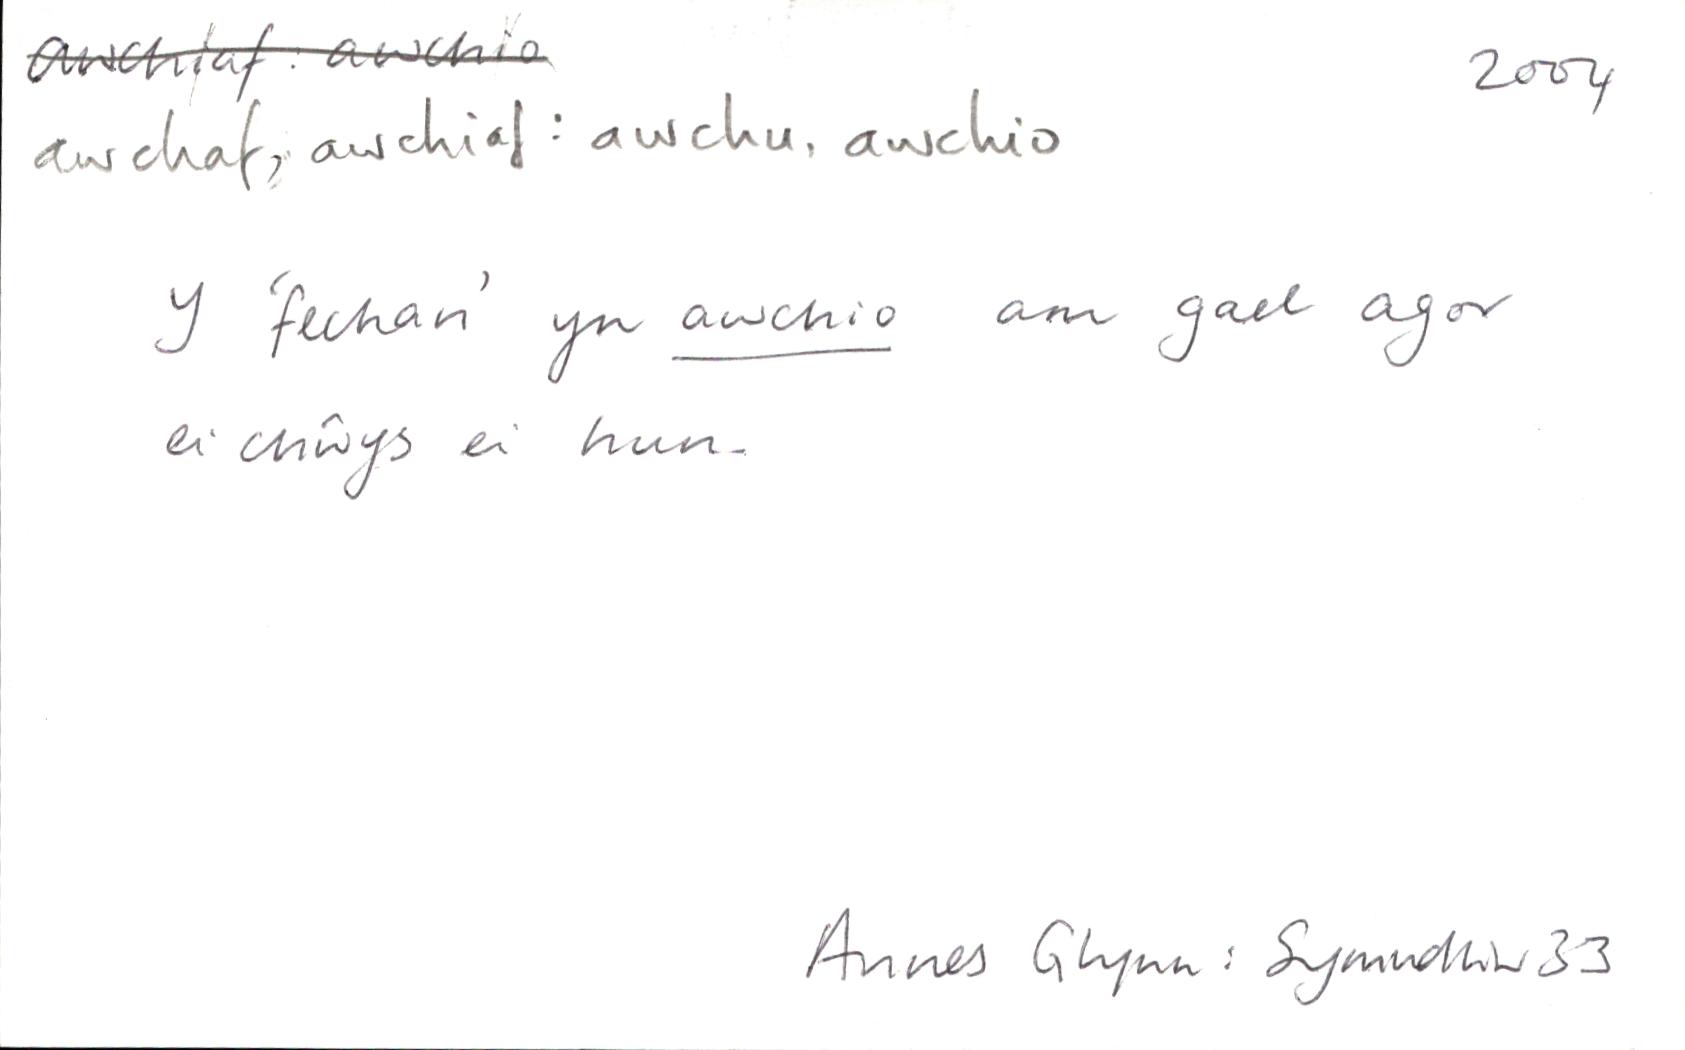 awchiaf: awchio
2004
awchaf, awchiaf: awchu, awchio
Y 'fechan' yn awchio am gael agor
ei chŵys ei hun.
Annes Glynn: Symudliw 33